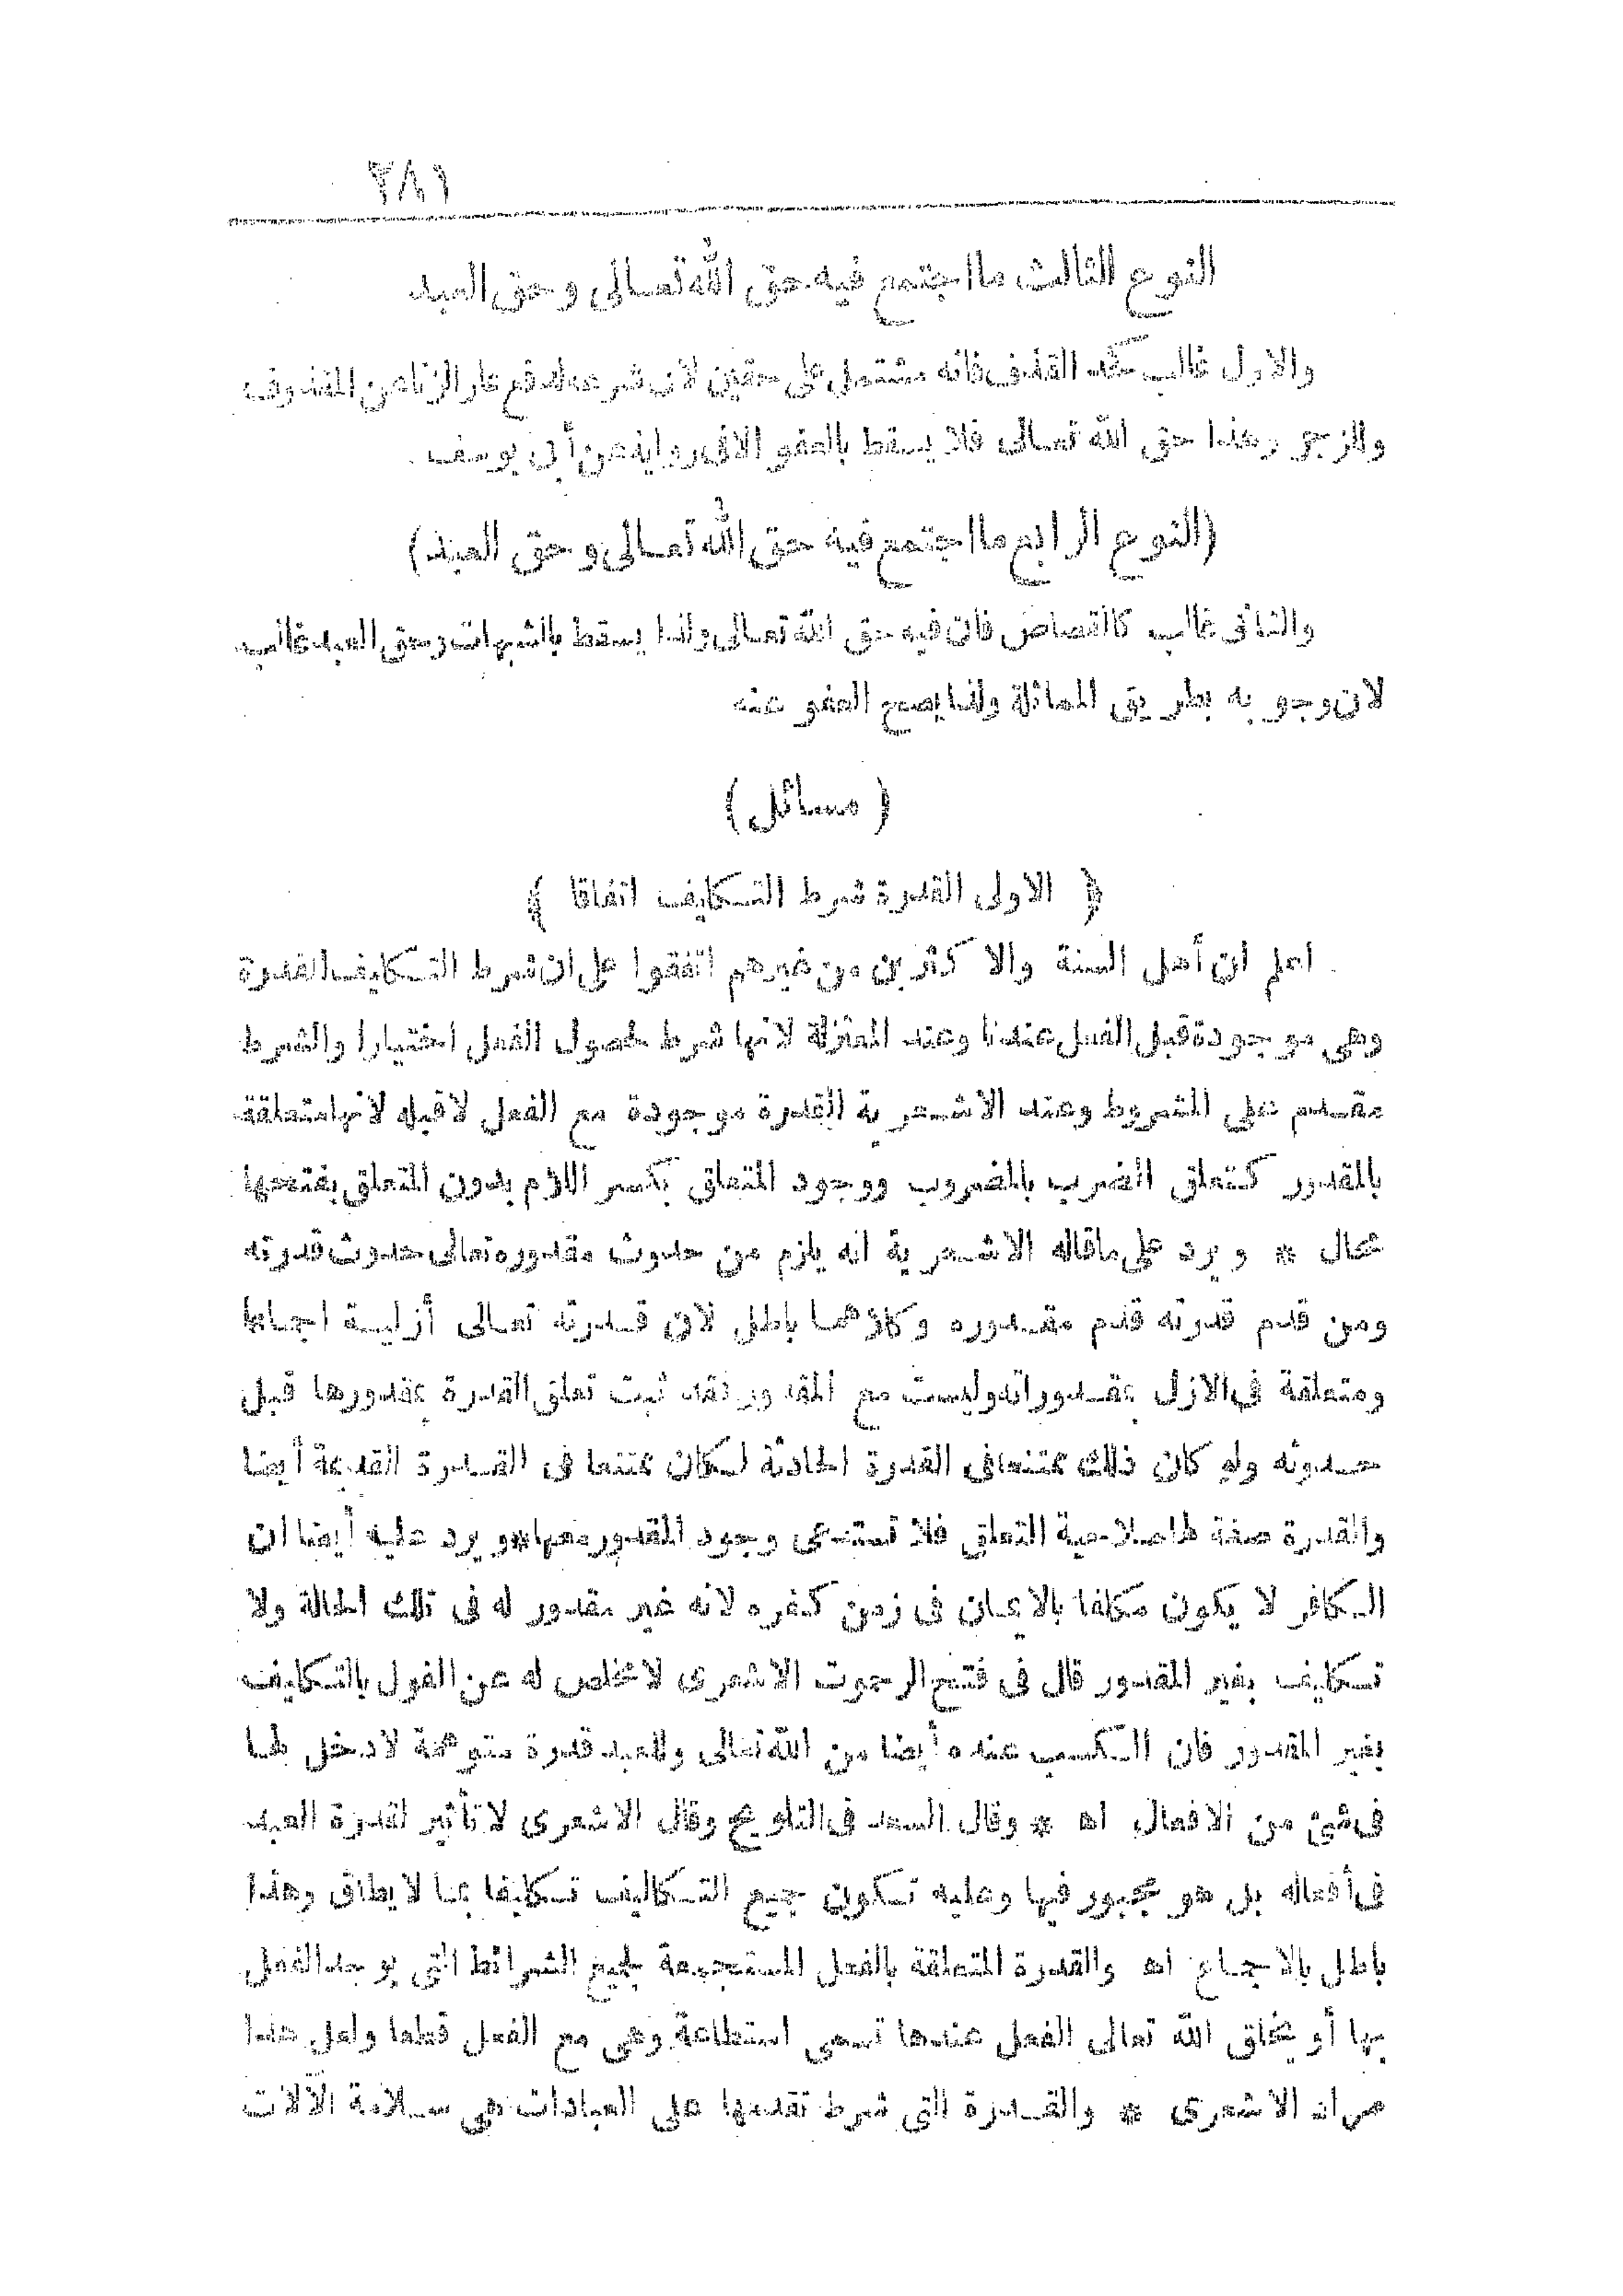 ٢٨١
النوع الثالث ما اجتمع فيه حق الله تعالى وحق العبد
والاول غالب كحد القذف فانه مشتمل على حقين لان شرعه لدفع عار الزنا عن المقذوف
والزجر وهذا حق الله تعالى فلا يسقط بالعفو الا فى رواية عن أبى يوسف
(النوع الرابع ما اجتمع فيه حق الله تعالى وحق العبد)
والثانى غالب كالقصاص فان فيه حق الله تعالى ولذا يسقط بالشبهات وحق العبد غالب
لان وجوبه بطريق المماثلة ولذا يصح العفو عنه
(مسائل)
﴿ الاولى القدرة شرط التكليف اتفاقا ﴾
اعلم ان أهل السنة والاكثرين من غيرهم اتفقوا على ان شرط التكليف القدرة
وهى موجودة قبل الفعل عندنا وعند المعتزلة لانها شرط لحصول الفعل اختيارا والشرط
مقدم على المشروط وعند الاشعرية القدرة موجودة مع الفعل لا قبله لانها متعلقة
بالمقدور كتعلق الضرب بالمضروب ووجود المتعلق بكسر اللام بدون المتعلق بفتحها
محال * ويرد على ما قاله الاشعرية انه يلزم من حدوث مقدوره تعالى حدوث قدرته
ومن قدم قدرته قدم مقدوره وكلاهما باطل لان قدرته تعالى أزلية اجماعا
ومتعلقة فى الازل بمقدوراته وليست مع المقدور فقد ثبت تعلق القدرة بمقدورها قبل
حدوثه ولو كان ذلك ممتنعا فى القدرة الحادثة لكان ممتنعا فى القدرة القديمة أيضا
والقدرة صفة لها صلاحية التعلق فلا تستدعى وجود المقدور معها * ويرد عليه أيضا ان
الكافر لا يكون مكلفا بالايمان فى زمن كفره لانه غير مقدور له فى تلك الحالة ولا
تكليف بغير المقدور قال فى فتح الرحموت الاشعرى لا مخلص له عن القول بالتكليف
بغير المقدور فان الكسب عنده أيضا من الله تعالى وللعبد قدرة متوهمة لا دخل لها
فى شئ من الافعال اه * وقال السعد فى التلويح وقال الاشعرى لا تأثير لقدرة العبد
فى أفعاله بل هو مجبور فيها وعليه تكون جميع التكاليف تكليفا بما لا يطاق وهذا
باطل بالاجماع اه والقدرة المتعلقة بالفعل المستجمعة لجميع الشرائط التى يوجد الفعل
بها أو يخلق الله تعالى الفعل عندها تسمى استطاعة وهى مع الفعل قطعا ولعل هذا
مراد الاشعرى * والقدرة التى شرط تقدمها على العبادات هى سلامة الآلات